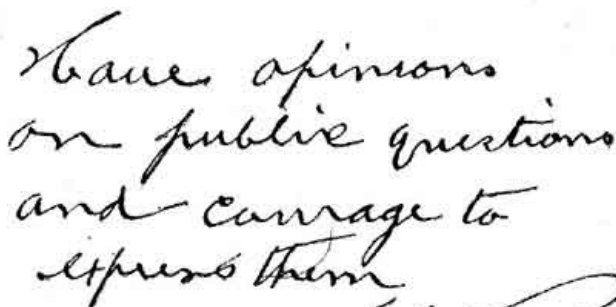 Have opinions
on public questions
and courage to
express them